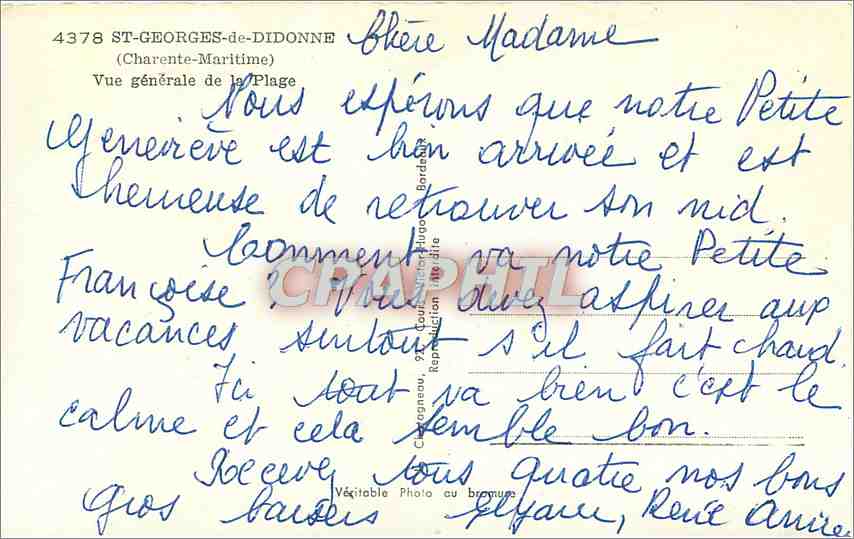 4378 ST-GEORGES-de-DIDONNE
(Charente-Maritime)
Vue générale de la Plage
Chère Madame
Nous espérons que notre Petite
Geneviève est bien arrivée et est
heureuse de retrouver son nid.
Comment va notre Petite
Françoise ? Vous devez aspirer aux
vacances surtout s'il fait chaud.
Ici tout va bien c'est le
calme et cela semble bon.
Recevez tous quatre nos bons
Gros baisers René
CPAPHIL
92, Cours Victor-Hugo Bordeaux
Reproduction interdite
Véritable Photo au bromure